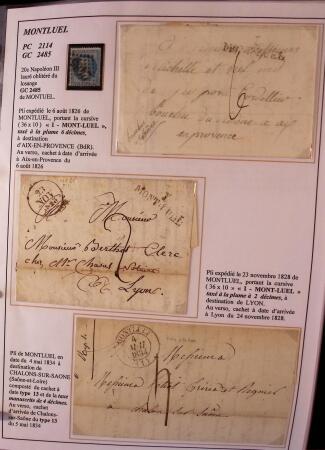 MONTLUEL
PC 2114
GC 2485
20c Napoléon III
lauré oblitéré du
losange
GC 2485
de MONTUEL.
Pli expédié le 6 août 1826 de
MONTLUEL, portant la cursive
( 36 x 10 ) « 1 - MONT-LUEL »,
taxé à la plume 6 décimes,
à destination
d'AIX-EN-PROVENCE (BdR).
Au verso, cachet à date d'arrivée
à Aix-en-Provence du
6 août 1826
en provence
1
MONTLUEL
23
NOV
Monsieur
Monsieur Berthet Clerc
Lyon
Pli expédié le 23 novembre 1828 de
MONTLUEL, portant la cursive
( 36 x 10 ) « 1 - MONT-LUEL »
taxé à la plume à 2 décimes, à
destination de LYON.
Au verso, cachet à date d'arrivée
à Lyon du 24 novembre 1828.
Pli de MONTLUEL en
date du 4 mai 1834 à
destination de
CHALONS-SUR-SAONE
(Saône-et-Loire)
composté de cachet à
date type 13 et de la taxe
manuscrite de 4 décimes.
Au verso, cachet
d'arrivée de Chalons-
sur-Saône du type 13
du 5 mai 1834
MONTLUEL
4
MAI
1834
Messieurs
Messieurs